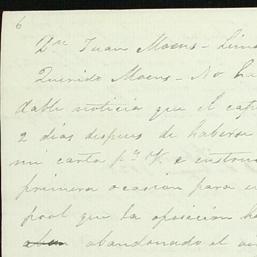 6
Dn Juan Moens - Lima
Querido Moens - No ha
dable noticia que el
2 dias despues de haberse
mi carta
primera ocasion para
pool que la oposicion
abandonado el